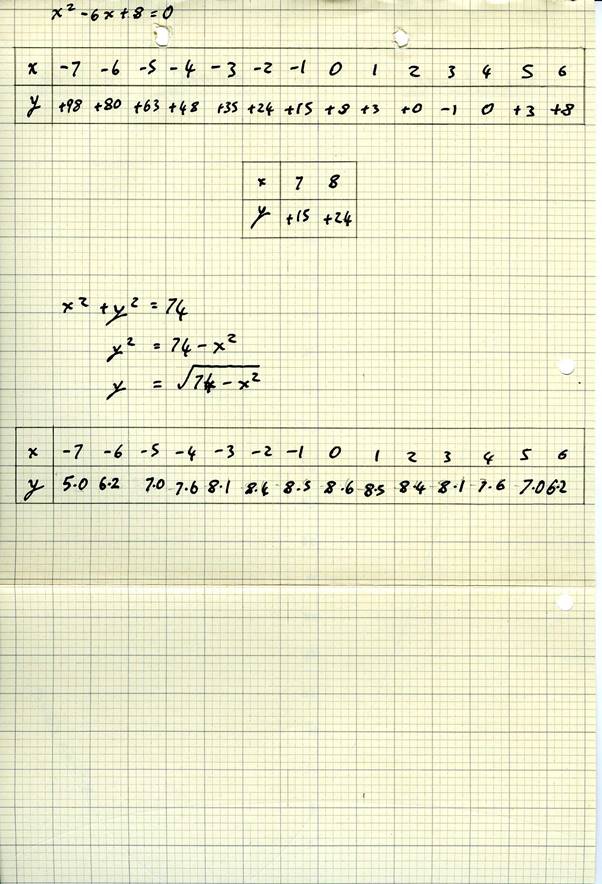 x² - 6x + 8 = 0
x -7 -6 -5 -4 -3 -2 -1 0 1 2 3 4 5 6
y +98 +80 +63 +48 +35 +24 +15 +8 +3 +0 -1 0 +3 +8
x 7 8
y +15 +24
x² + y² = 74
y² = 74 - x²
y = √74 - x²
x -7 -6 -5 -4 -3 -2 -1 0 1 2 3 4 5 6
y 5.0 6.2 7.0 7.6 8.1 8.4 8.5 8.6 8.5 8.4 8.1 7.6 7.0 6.2